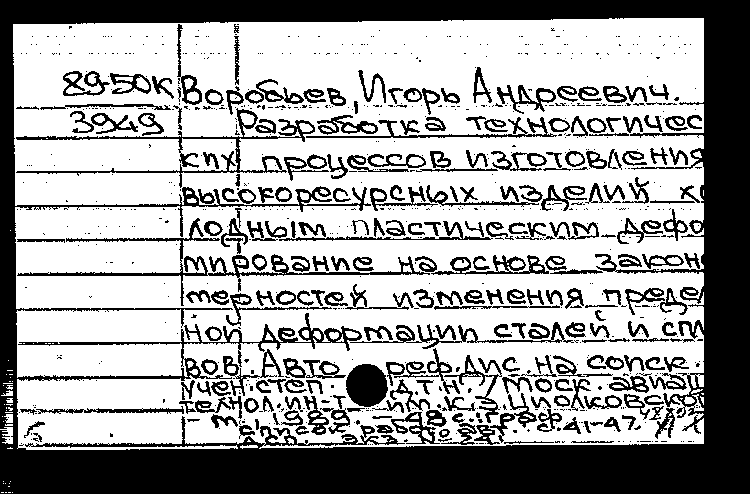 89-50К Воробьев, Игорь Андреевич.
3949 Разработка технологичес
ких процессов изготовления
высокоресурсных изделий хо
лодным пластическим дефо
мирование на основе законо
мерностей изменения предел
ной деформации сталей и спл
вов: Автореф. дис. на соиск.
учен. степ. д.т.н. / Моск. авиац
технол. ин-т им. К.Э. Циолковског
- М., 1989. - 48 с.: граф
Список работ авт.: с. 41-47.